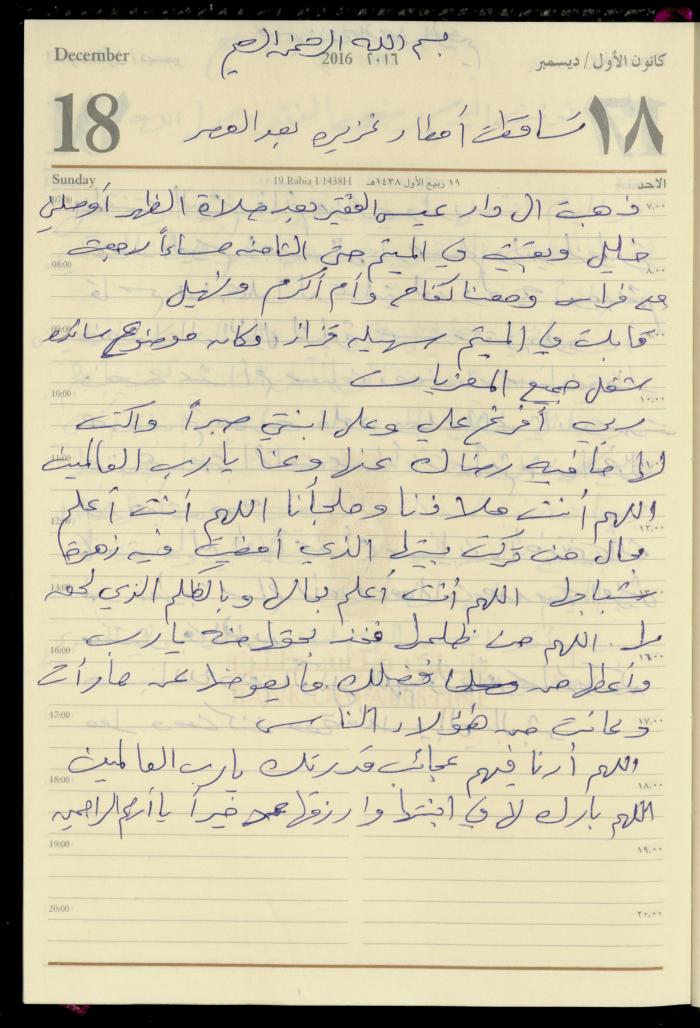 بسم الله الرحمن الرحيم
December 2016 ٢٠١٦ كانون الأول / ديسمبر
18 تساقطت أمطار غزيره بعد العصر ١٨
Sunday 19 Rabia I 1438H ١٩ ربيع الأول ١٤٣٨هـ الاحد
07:00 ٧,٠٠
ذهبت الى دار عيسى الفقير بعد صلاة الظهر أوصلني
خليل وبقيت في الميتم حتى الثامنه مساءاً رجعت
08:00 ٨,٠٠
مع فراس ومعنا كفاح وأم أكرم ونهيل
قابلت في الميتم سهيله قزاز، وكان موضوع سائده
09:00 ٩,٠٠
شغل جميع المعزيات
10:00 ١٠,٠٠
ربي أفرغ علي وعلى ابنتي صبراً واكتب
لنا ما فيه رضاك عنها وعنا يا رب العالمين
11:00
اللهم أنت ملاذنا وملجأنا اللهم أنت أعلم
12:00 ١٢,٠٠
بحال من تركت بيتها الذي أمضت فيه زهرة
شبابها اللهم أنت أعلم بحالها وبالظلم الذي لحق
بها. اللهم من ظلمها فخذ بحقها منه يا رب
16:00 ١٦,٠٠
وأعطها من فضلك ما يعوضها عن ما رأت
وعانت من هؤلاء الناس
17:00 ١٧,٠٠
اللهم أرنا فيهم عجائب قدرتك يا رب العالمين
18:00 ١٨,٠٠
اللهم بارك لها في ابنتها وارزقها خيراً يا أرحم الراحمين
19:00 ١٩,٠٠
20:00 ٢٠,٠٠